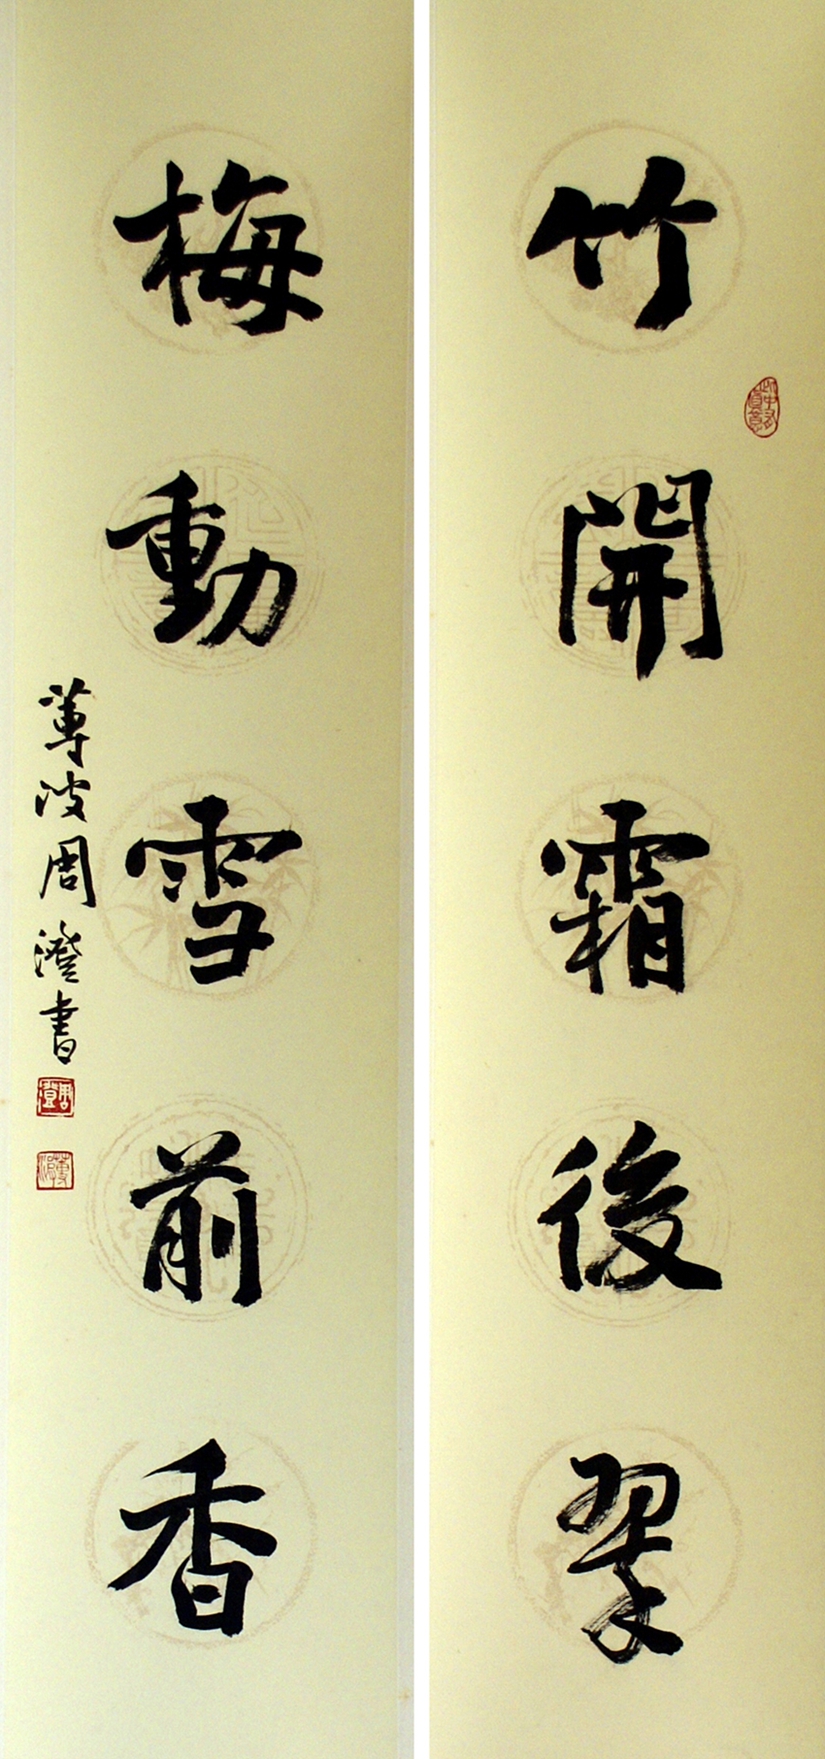 竹開霜後翠
梅動雪前香
蓴波周澄書
周澄